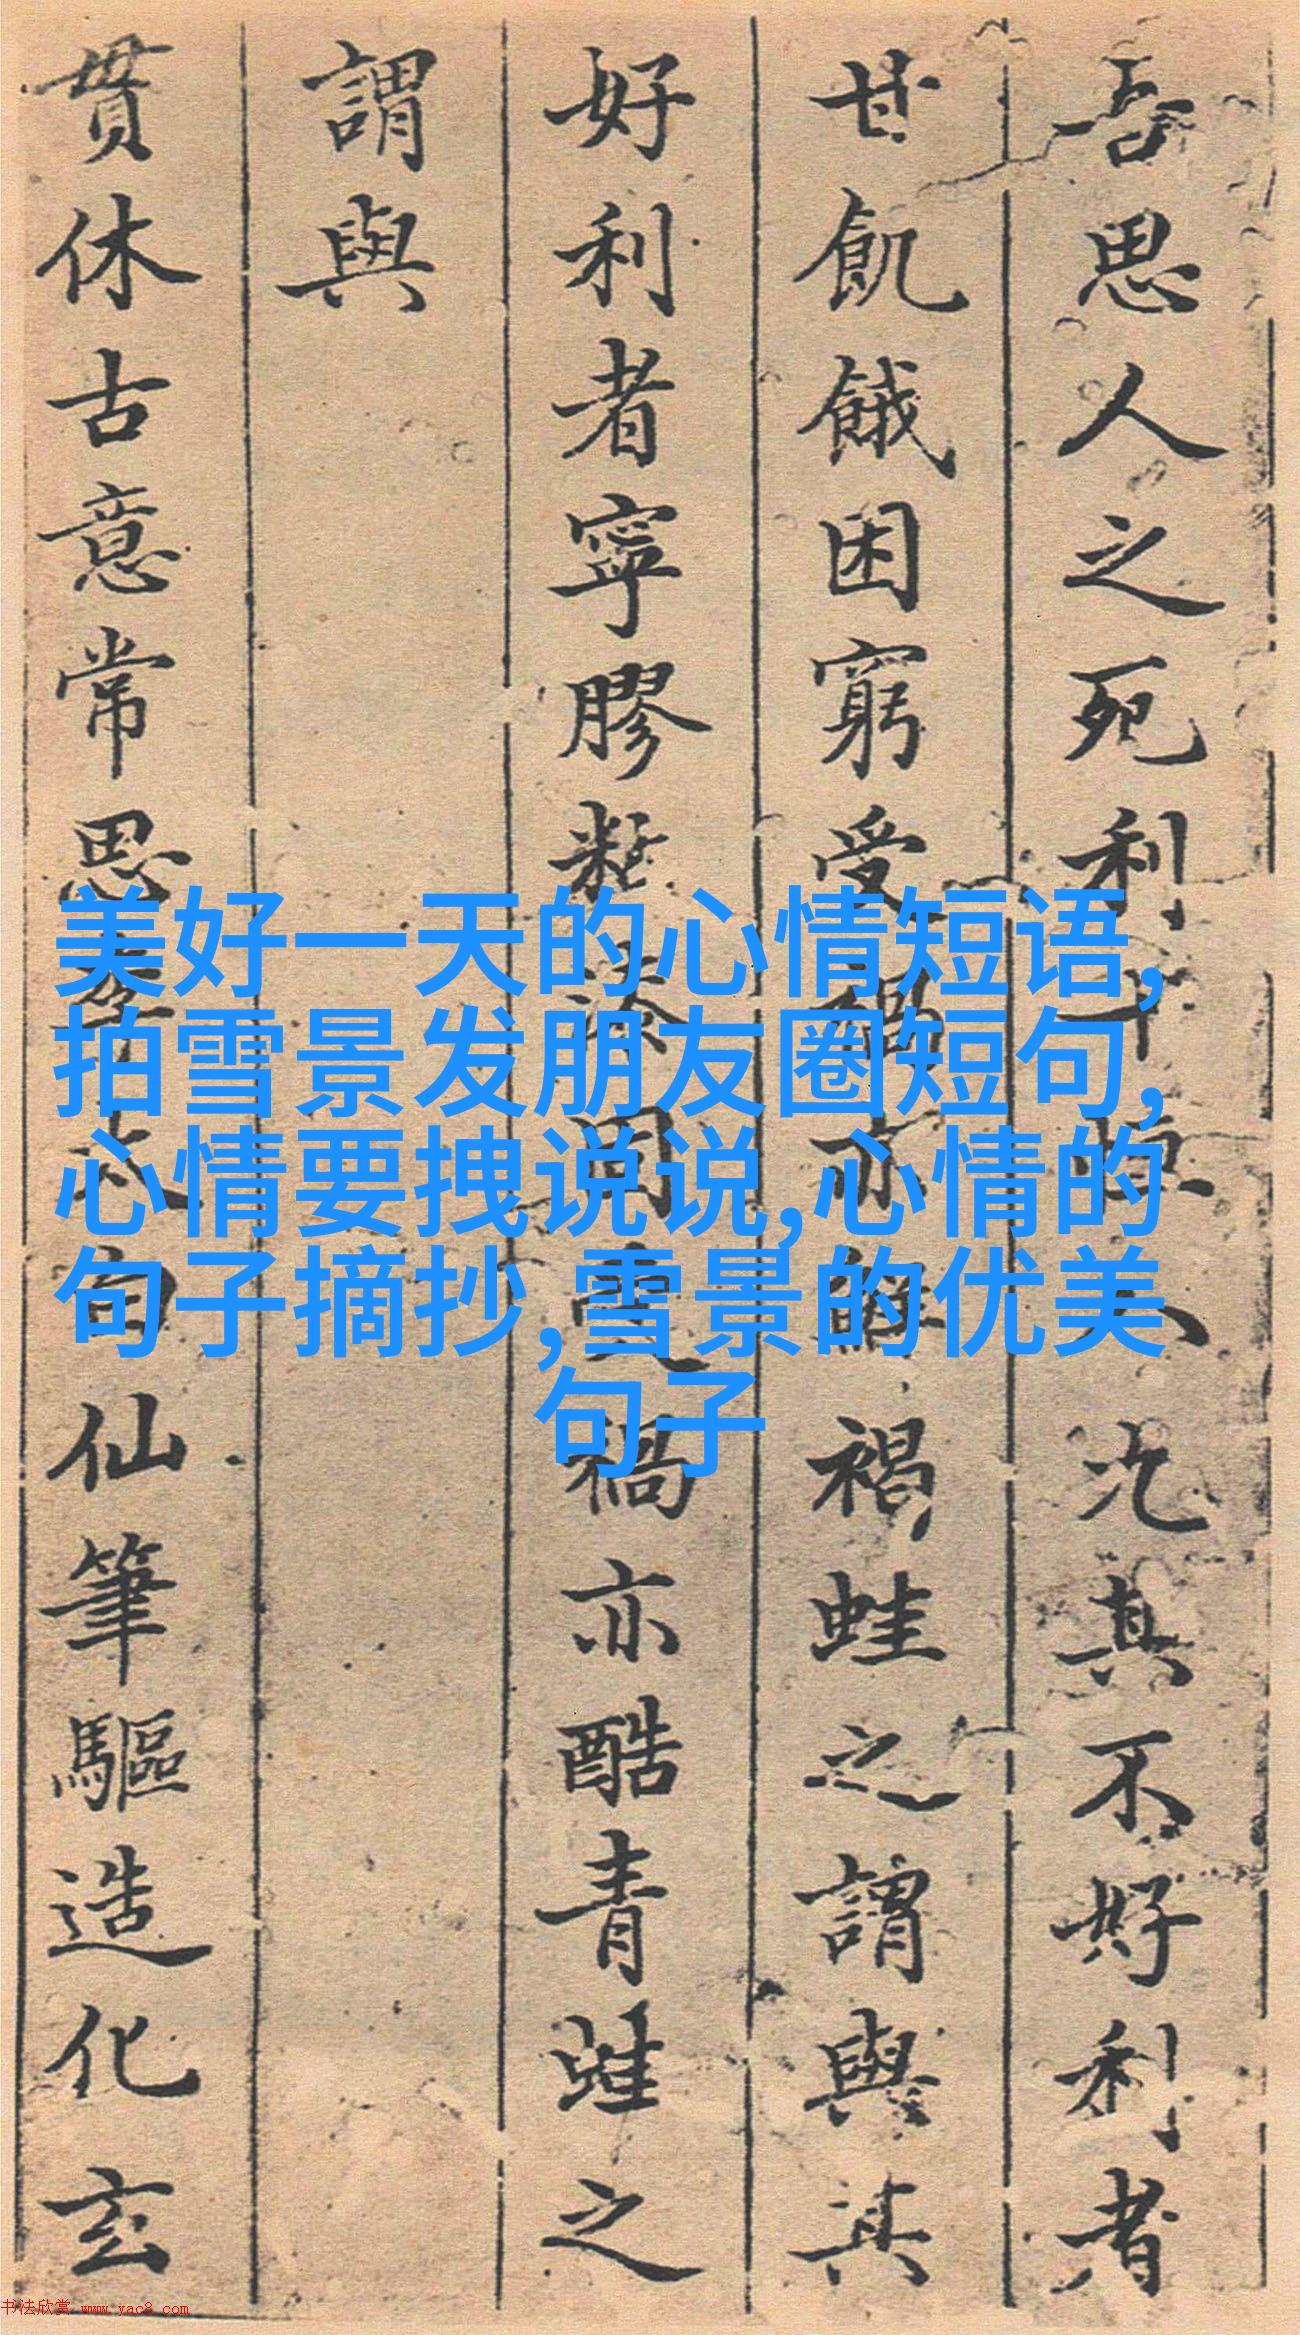 吾思人之死利十恒八九其不好利者
甘飢餓困窮受禍亦鮮禍蛙之謂與其
好利者寧膠黏漆固虎禍亦酷青蛙之
謂與
貫休古意常思李太白仙筆驅造化玄
美好一天的心情短语,
拍雪景发朋友圈短句,
心情要拽说说,心情的
句子摘抄,雪景的优美
句子
书法欣赏 www.yac8.com